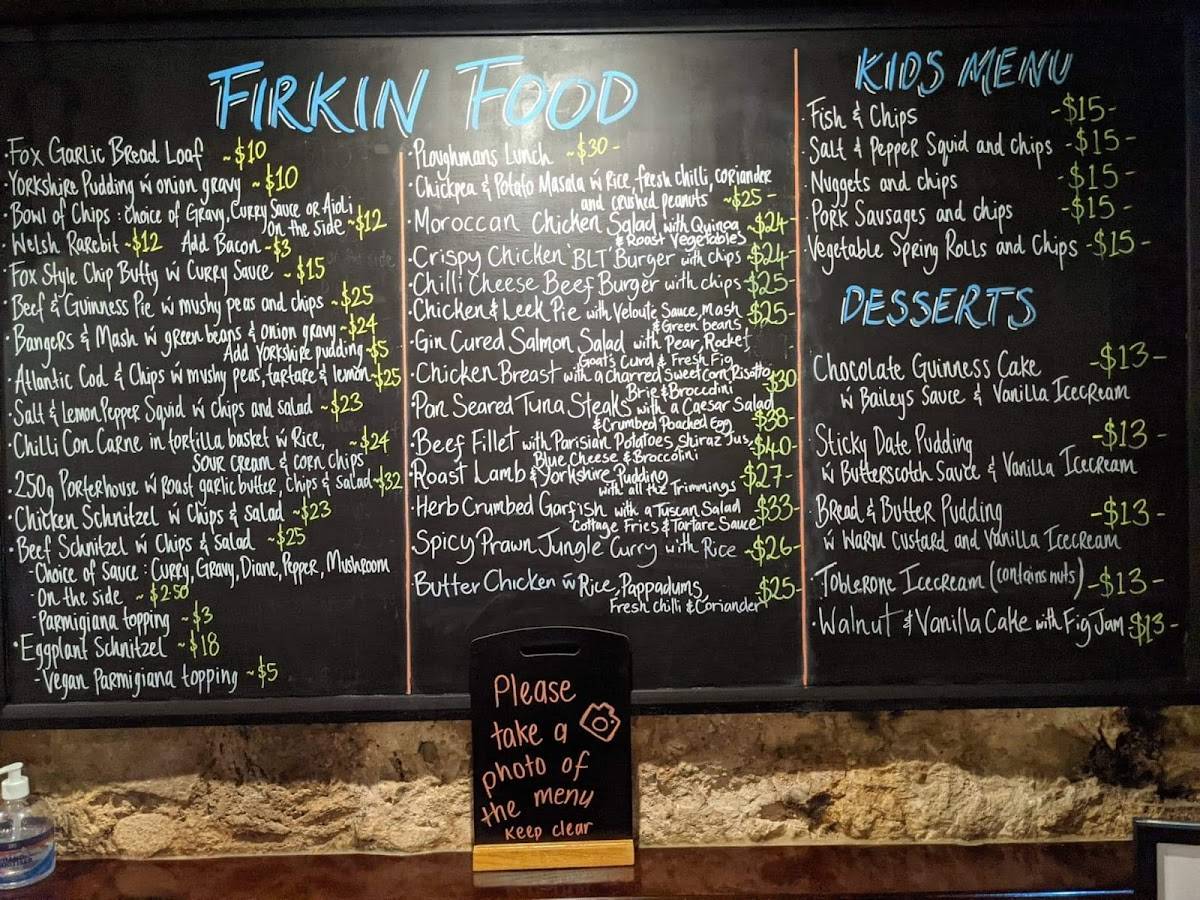 FIRKIN FOOD
·Fox Garlic Bread Loaf ~$10
·Yorkshire Pudding w̄ onion gravy ~$10
·Bowl of Chips : Choice of Gravy, Curry Sauce or Aioli
On the side ~$12
·Welsh Rarebit ~$12 Add Bacon ~$3
·Fox Style Chip Butty w̄ Curry Sauce ~$15
·Beef & Guinness Pie w̄ mushy peas and chips ~$25
·Bangers & Mash w̄ green beans & onion gravy ~$24
Add Yorkshire pudding ~$5
·Atlantic Cod & Chips w̄ mushy peas, tartare & lemon ~$25
·Salt & Lemon Pepper Squid w̄ chips and salad ~$23
·Chilli Con Carne in tortilla basket w̄ Rice, ~$24
Sour cream & corn chips
·250g Porterhouse w̄ roast garlic butter, chips & salad ~$32
·Chicken Schnitzel w̄ Chips & salad ~$23
·Beef Schnitzel w̄ Chips & salad ~$25
-Choice of Sauce : Curry, Gravy, Diane, Pepper, Mushroom
-On the side ~$2.50
-Parmigiana topping ~$3
·Eggplant Schnitzel ~$18
-Vegan Parmigiana topping ~$5
·Ploughmans Lunch ~$30-
·Chickpea & Potato Masala w̄ Rice, fresh chilli, coriander
and crushed peanuts ~$25-
·Moroccan Chicken Salad with Quinoa -$24-
& Roast Vegetables
·Crispy Chicken 'BLT' Burger with chips -$24-
·Chilli Cheese Beef Burger with chips -$25-
·Chicken & Leek Pie with Veloute Sauce, Mash -$25-
& Green beans
·Gin Cured Salmon Salad with Pear, Rocket
Goat's Curd & Fresh Fig
·Chicken Breast with a charred Sweet Corn Risotto -$30
Brie & Broccolini
·Pan Seared Tuna Steaks with a Caesar Salad
& Crumbed Poached Egg -$38-
·Beef Fillet with Parisian Potatoes, Shiraz Jus, -$40-
Blue Cheese & Broccolini
·Roast Lamb & Yorkshire Pudding -$27-
with all the Trimmings
·Herb Crumbed Garfish with a Tuscan Salad -$33-
Cottage Fries & Tartare Sauce
·Spicy Prawn Jungle Curry with Rice -$26-
·Butter Chicken w̄ Rice, Pappadums, -$25-
Fresh chilli & Coriander
KIDS MENU
·Fish & Chips -$15-
·Salt & Pepper Squid and chips -$15-
·Nuggets and chips -$15-
·Pork Sausages and chips -$15-
·Vegetable Spring Rolls and Chips -$15-
DESSERTS
·Chocolate Guinness Cake -$13-
w̄ Baileys Sauce & Vanilla Icecream
·Sticky Date Pudding -$13-
w̄ Butterscotch Sauce & Vanilla Icecream
·Bread & Butter Pudding -$13-
w̄ Warm Custard and Vanilla Icecream
·Toblerone Icecream (contains nuts) -$13-
·Walnut & Vanilla Cake with Fig Jam $13-
Please
take a
photo of
the menu
Keep clear